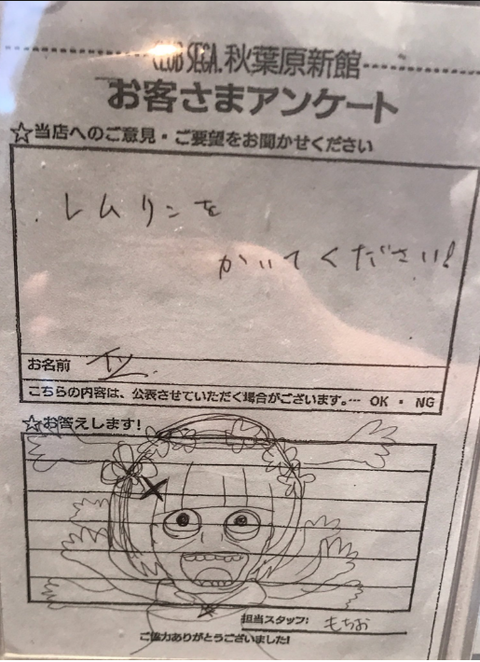 CLUB SEGA.秋葉原新館
お客さまアンケート
☆当店へのご意見・ご要望をお聞かせください
レムリンを
かいてください!
お名前
こちらの内容は、公表させていただく場合がございます。… OK ・ NG
☆お答えします!
担当スタッフ: もちお
ご協力ありがとうございました!